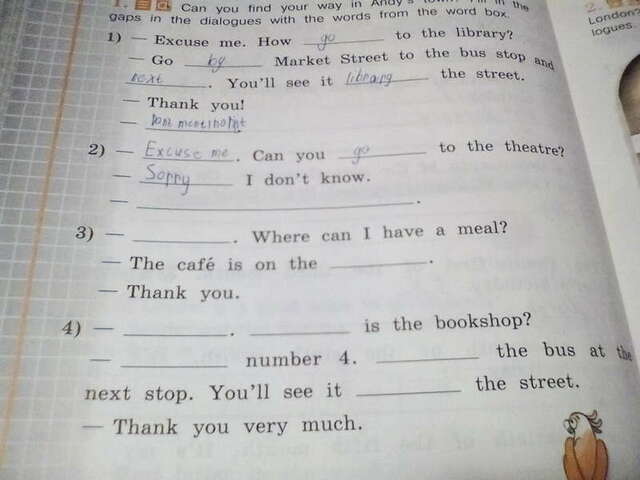 1. Can you find your way in Andy's town? Fill in the
gaps in the dialogues with the words from the word box.
1) — Excuse me. How go to the library?
— Go by Market Street to the bus stop and
next. You'll see it library the street.
— Thank you!
— Dont mentinot
2) — Excuse me. Can you go to the theatre?
— Sorry I don't know.
— .
3) — . Where can I have a meal?
— The café is on the .
— Thank you.
4) — . is the bookshop?
— number 4. the bus at the
next stop. You'll see it the street.
— Thank you very much.
2.
London?
logues.